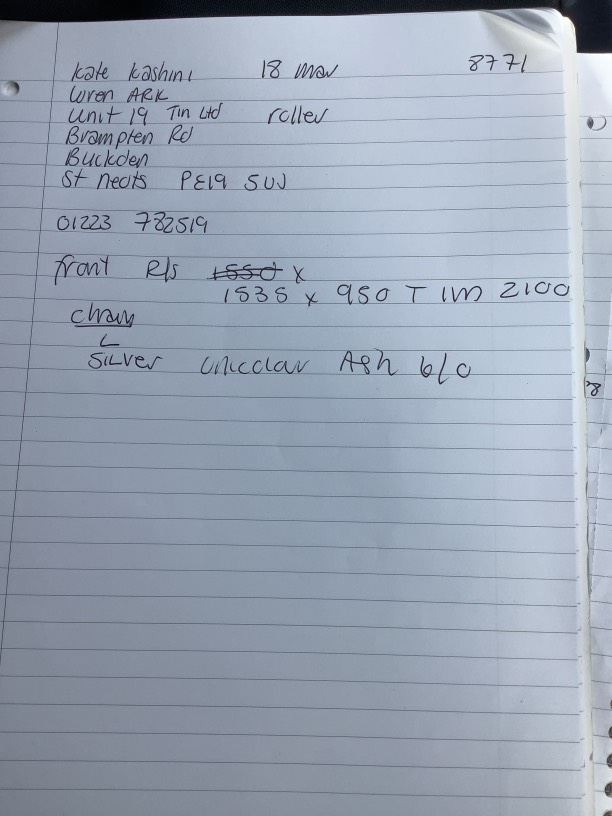 Kate Kashini 18 Mar 8771
Wren ARK
Unit 19 Tin Ltd roller
Brampten Rd
Buckden
St Neots PE19 5UJ
01223 782519
front R/s 1550 x
1535 x 950 T 1m 2100
chain
L
SILVER Unicolour Ash b/o
8